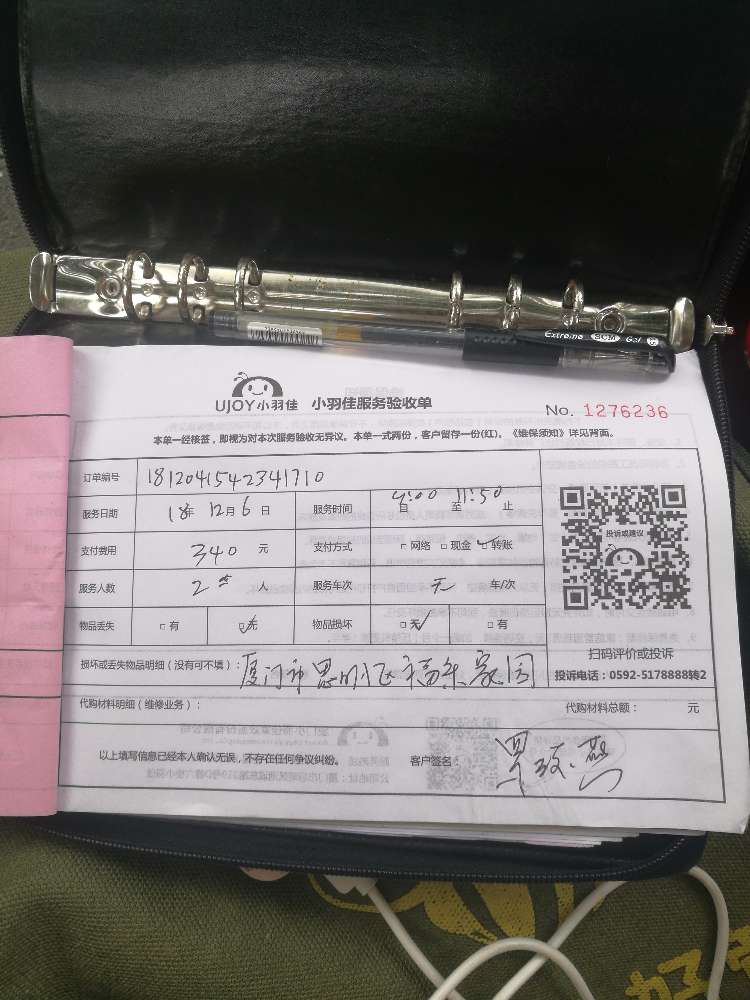 Extreme SCM Gel
UJOY小羽佳 小羽佳服务验收单
No. 1276236
本单一经核签，即视为对本次服务验收无异议。本单一式两份，客户留存一份(红)。《维保须知》详见背面。
订单编号 1812041542341710
服务日期 18年 12月 6日 服务时间 9:00 自 至 11:50 止
支付费用 340 元 支付方式 □网络 □现金 ☑转账
服务人数 2 人 服务车次 无 车/次
物品丢失 □有 ☑无 物品损坏 ☑无 □有
投诉或建议
扫码评价或投诉
投诉电话：0592-5178888转2
损坏或丢失物品明细（没有可不填）：厦门市思明区福乐家园
代购材料明细（维修业务）： 代购材料总额： 元
以上填写信息已经本人确认无误，不存在任何争议纠纷。 客户签名：